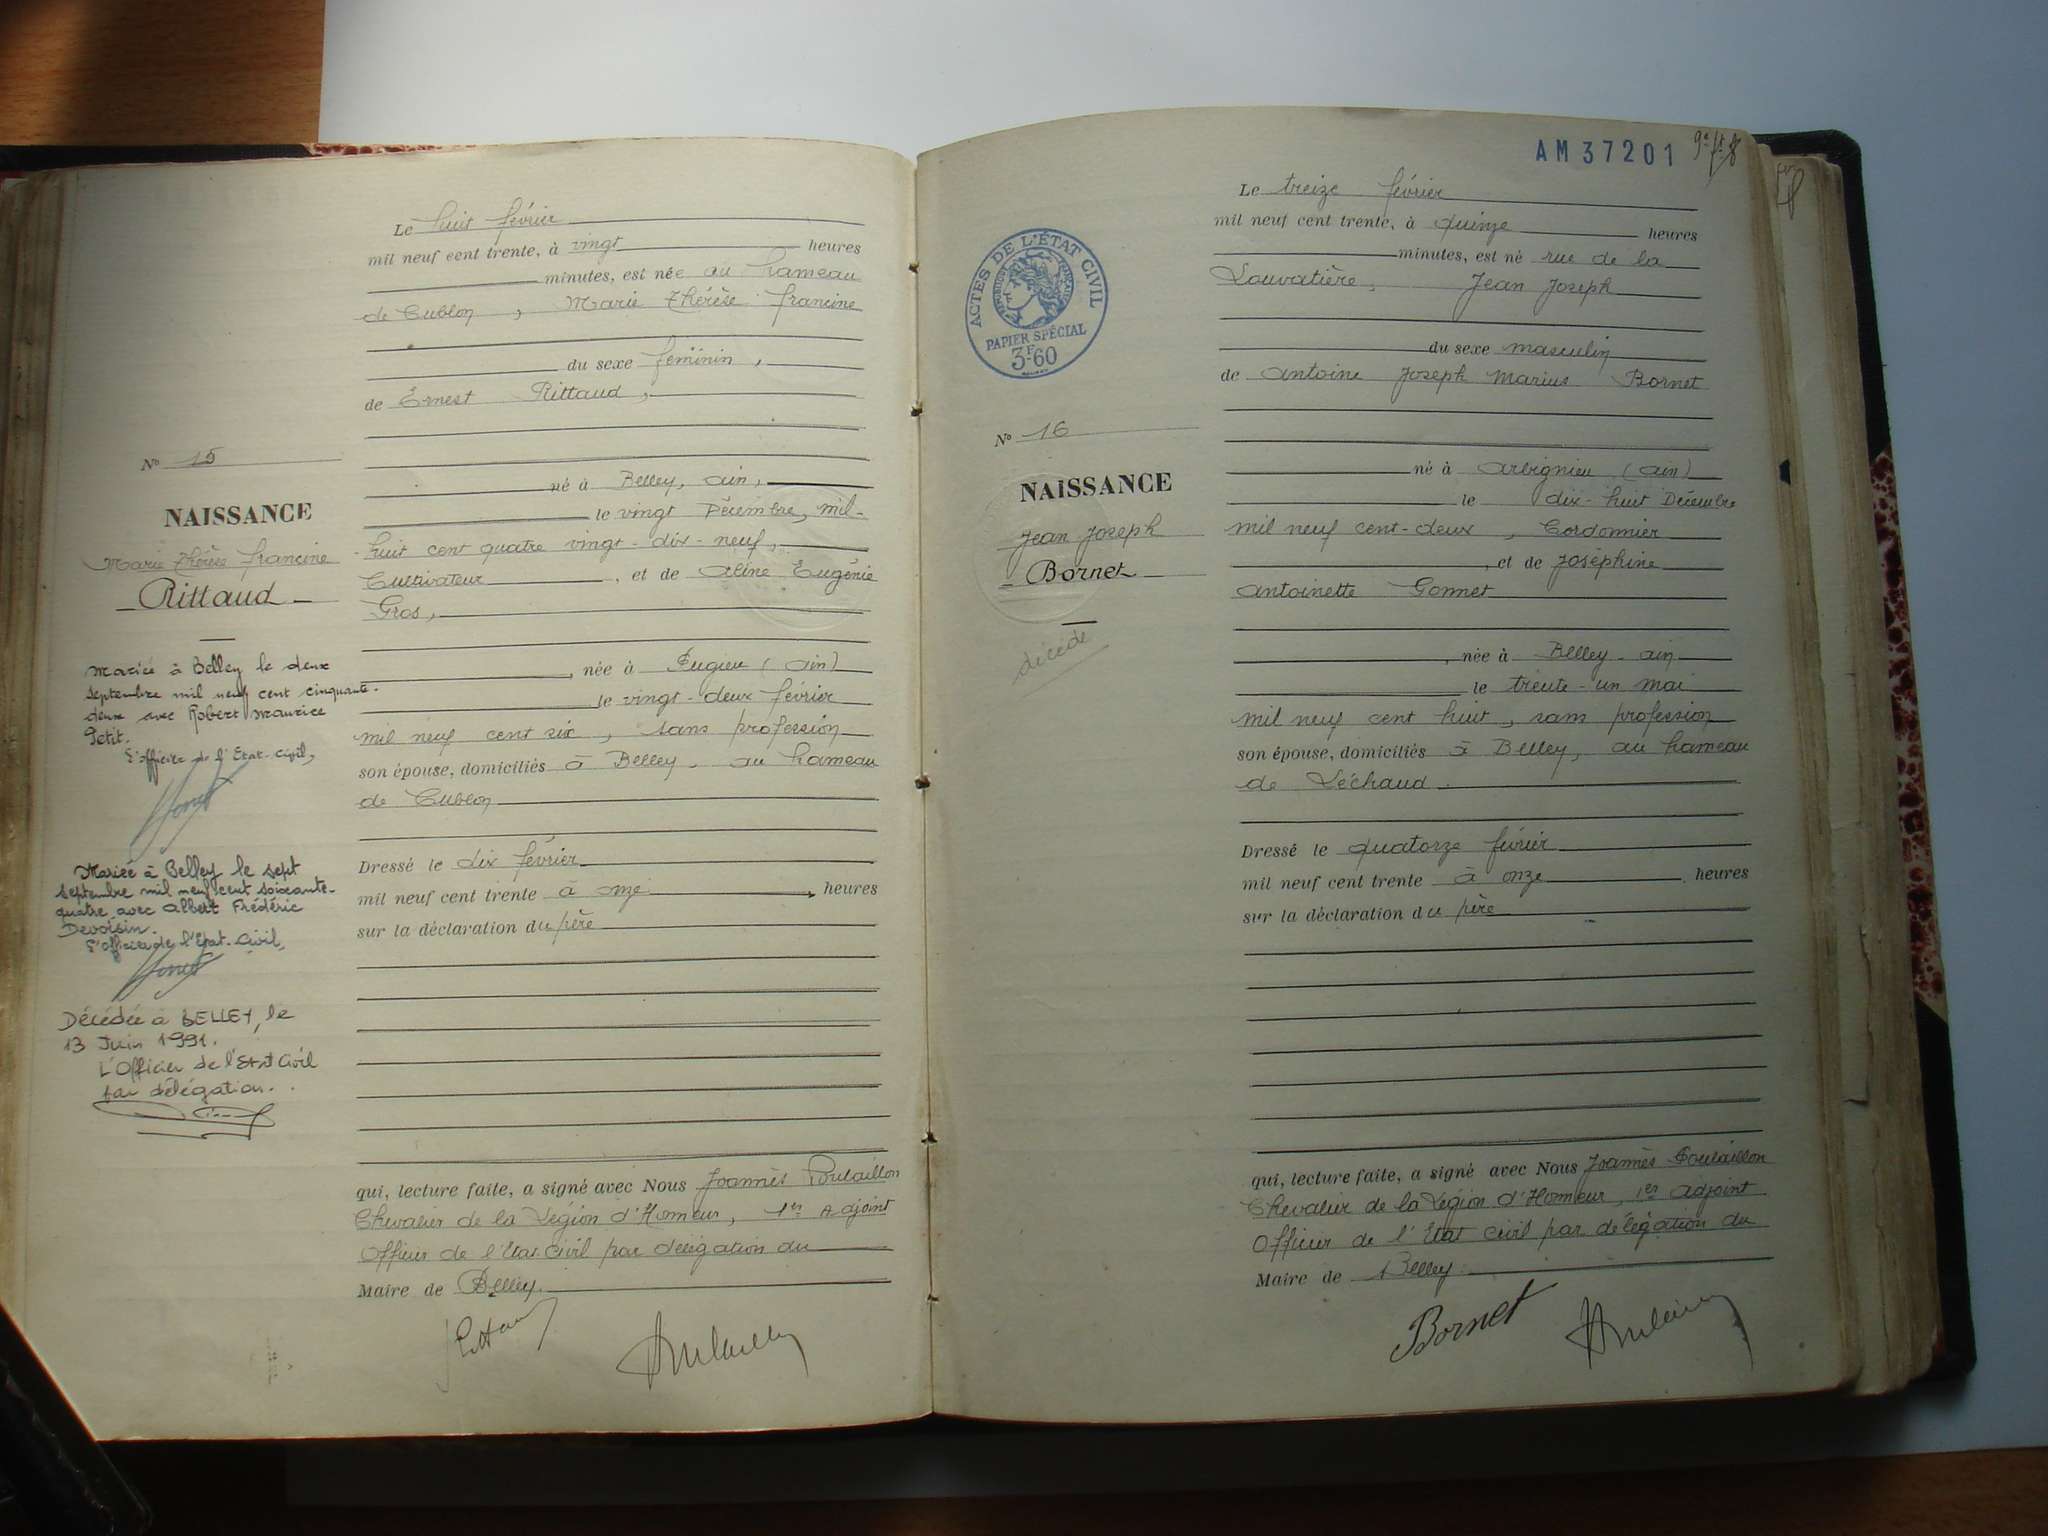 Le huit février
mil neuf cent trente, à vingt heures
minutes, est née au hameau
de Cublon, Marie Thérèse Francine
du sexe feminin,
de Ernest Rittaud,
N° 15
né à Belley, ain,
NAISSANCE
le vingt Décembre, mil-
huit cent quatre vingt-dix-neuf,
Marie Thérèse Francine
Cultivateur, et de Aline Eugénie
Rittaud
Gros,
née à Pugieu (ain)
le vingt-deux février
mil neuf cent six, sans profession
son épouse, domiciliés à Belley, au hameau
de Cublon
Mariée à Belley le deux
septembre mil neuf cent cinquante-
deux avec Robert Maurice
Petit.
L'officier de l'Etat-Civil,
Dressé le dix février
mil neuf cent trente à onze, heures
sur la déclaration du père
Mariée à Belley le sept
septembre mil neuf cent soixante-
quatre avec Albert Frédéric
Devoisin.
L'officier de l'Etat-Civil,
Décédée à BELLEY, le
13 Juin 1991.
L'Officier de l'Etat Civil
par délégation.
qui, lecture faite, a signé avec Nous Joannès Poulaillon
Chevalier de la Légion d'Honneur, 1er Adjoint
Officier de l'Etat Civil par délégation du
Maire de Belley.
AM37201
Le treize février
mil neuf cent trente, à quinze heures
minutes, est né rue de la
Louvatière, Jean Joseph
ACTES DE L'ÉTAT CIVIL
PAPIER SPÉCIAL
3F60
du sexe masculin
de Antoine Joseph Marius Bornet
N° 16
né à Arbignieu (ain)
NAISSANCE
le dix-huit Décembre
Jean Joseph
mil neuf cent-deux, Cordonnier
Bornet
, et de Joséphine
Antoinette Gonnet
décédé
, née à Belley-ain
le trente-un mai
mil neuf cent huit, sans profession
son épouse, domiciliés à Belley, au hameau
de Léchaud.
Dressé le quatorze février
mil neuf cent trente à onze heures
sur la déclaration du père
qui, lecture faite, a signé avec Nous Joannès Poulaillon
Chevalier de la Légion d'Honneur, 1er adjoint
Officier de l'Etat civil par délégation du
Maire de Belley.
Bornet